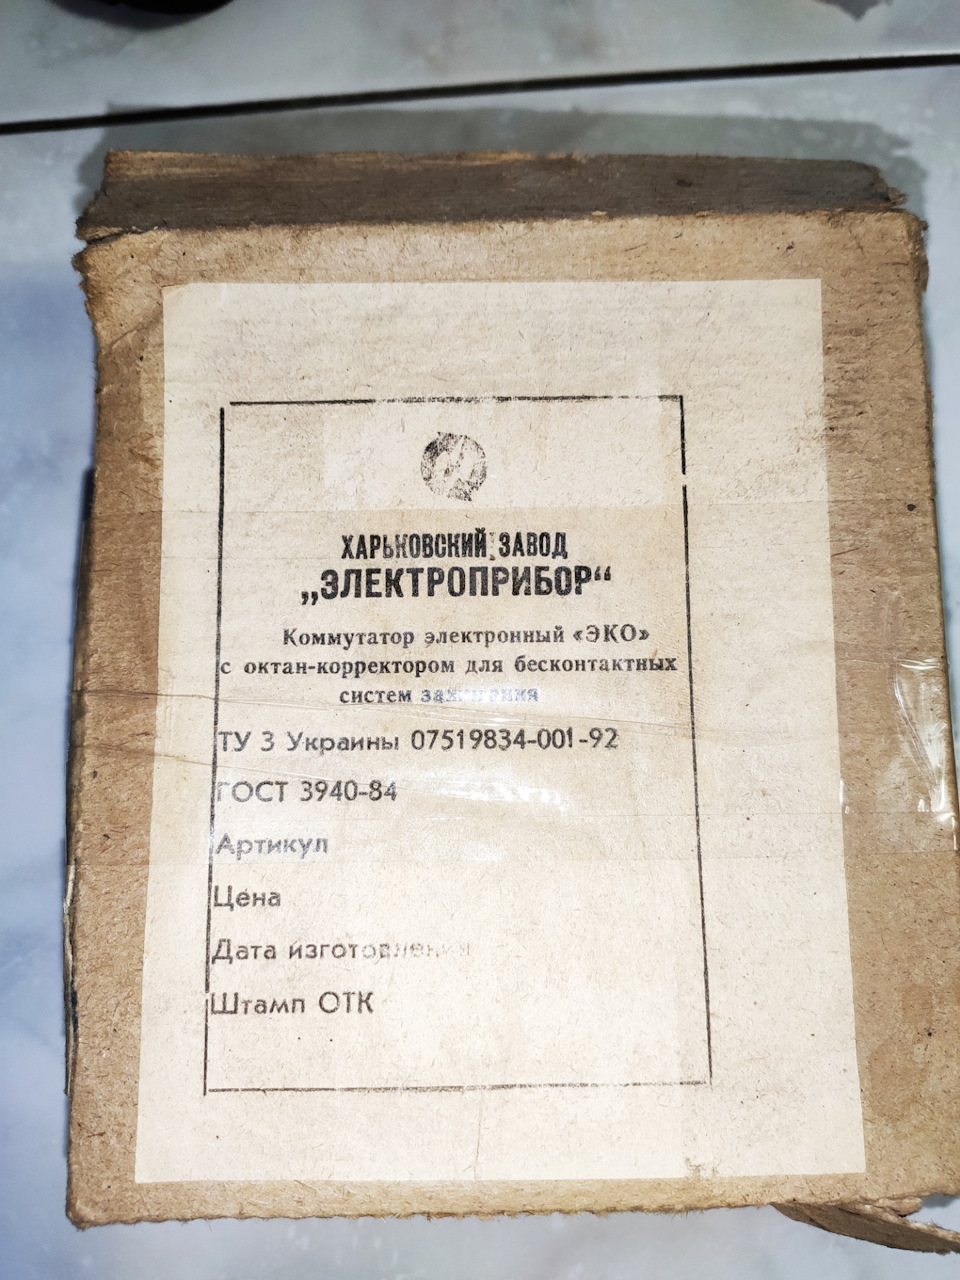 ХАРЬКОВСКИЙ ЗАВОД
„ЭЛЕКТРОПРИБОР“
Коммутатор электронный «ЭКО»
с октан-корректором для бесконтактных
систем зажигания
ТУ 3 Украины 07519834-001-92
ГОСТ 3940-84
Артикул
Цена
Дата изготовления
Штамп ОТК